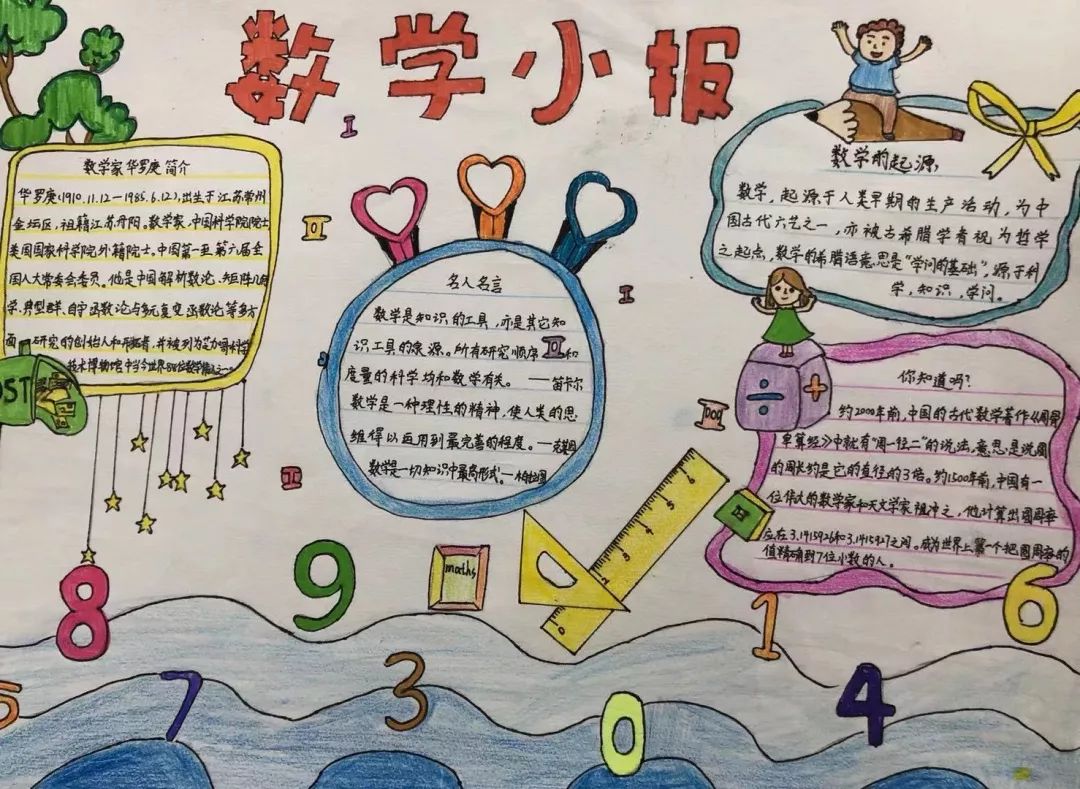 数学小报
数学家华罗庚简介
华罗庚(1910.11.12—1985.6.12),出生于江苏常州
金坛区,祖籍江苏丹阳,数学家,中国科学院院士,
美国国家科学院外籍院士,中国第一至第六届全
国人大常委会委员。他是中国解析数论、矩阵几何
学、典型群、自守函数论与多元复变函数论等多方
面研究的创始人和开拓者,并被列为芝加哥科学
技术博物馆中当今世界88位数学伟人之一。
OST
名人名言
数学是知识的工具,亦是其它知
识工具的泉源。所有研究顺序和
度量的科学均和数学有关。——笛卡尔
数学是一种理性的精神,使人类的思
维得以运用到最完善的程度。—克莱因
数学是一切知识中最高形式。—柏拉图
数学的起源:
数学,起源于人类早期的生产活动,为中
国古代六艺之一,亦被古希腊学者视为哲学
之起点,数学的希腊语意思是“学问的基础”,源于科
学,知识,学问。
÷ +
你知道吗?
约2000年前,中国的古代数学著作《周髀
算经》中就有“周一径二”的说法,意思是说圆
的周长约是它的直径的3倍。约1500年前,中国有一
位伟大的数学家和天文学家祖冲之,他计算出圆周率
应在3.1415926和3.1415927之间。成为世界上第一个把圆周率的
值精确到7位小数的人。
maths
0 2 3 4 5 6
8
9
1
6
5
7
3
0
4